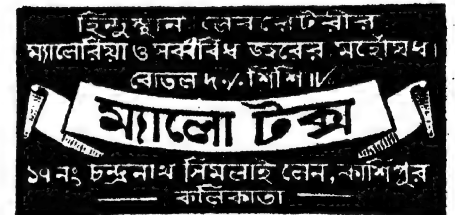 হিন্দুস্থান লেবরেটরীর
ম্যালেরিয়া ও সর্ব্ববিধ জ্বরের মহৌষধ।
বোতল ৸৹ শিশি ॥৵
ম্যালো টক্স
১৭ নং চন্দ্রনাথ সিমলাই লেন, কাশিপুর
কলিকাতা